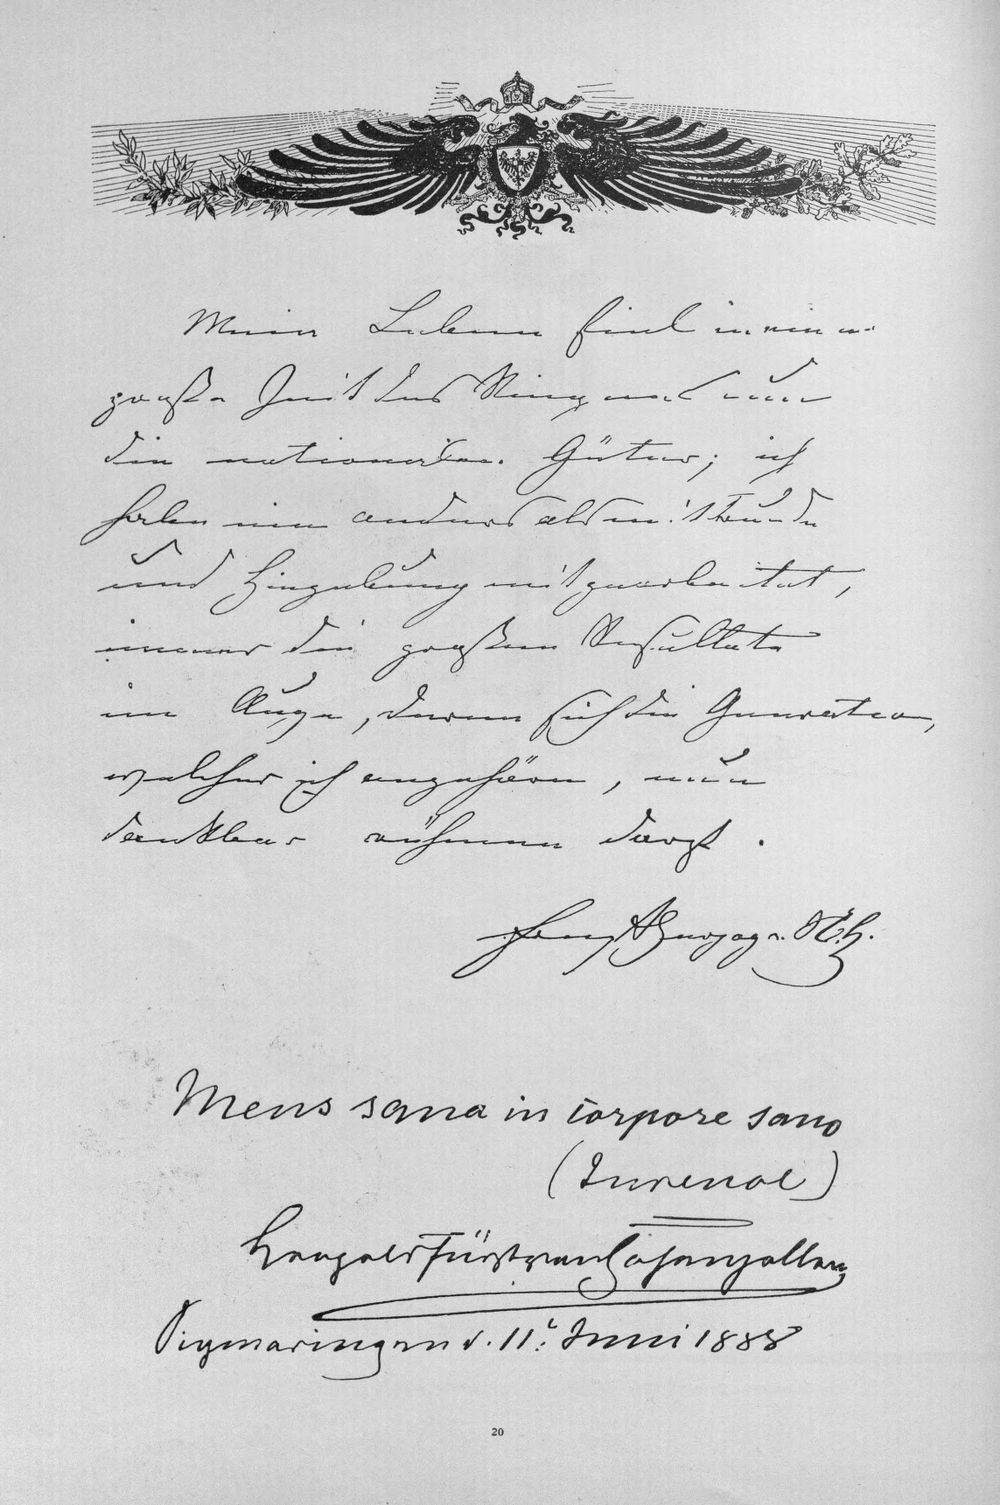 Mein Leben fiel in eine
große Zeit des Ringens um
die nationalen Güter; ich
habe nie anders als mit Freude
und Hingebung mitgearbeitet,
immer die großen Resultate
im Auge, deren sich die Generation,
welcher ich angehöre, nun
dankbar rühmen darf.
Ernst Herzog v. S.C.G.
Mens sana in corpore sano
(Juvenal)
Leopold Fürst von Hohenzollern
Sigmaringen d. 11t. Juni 1888
20